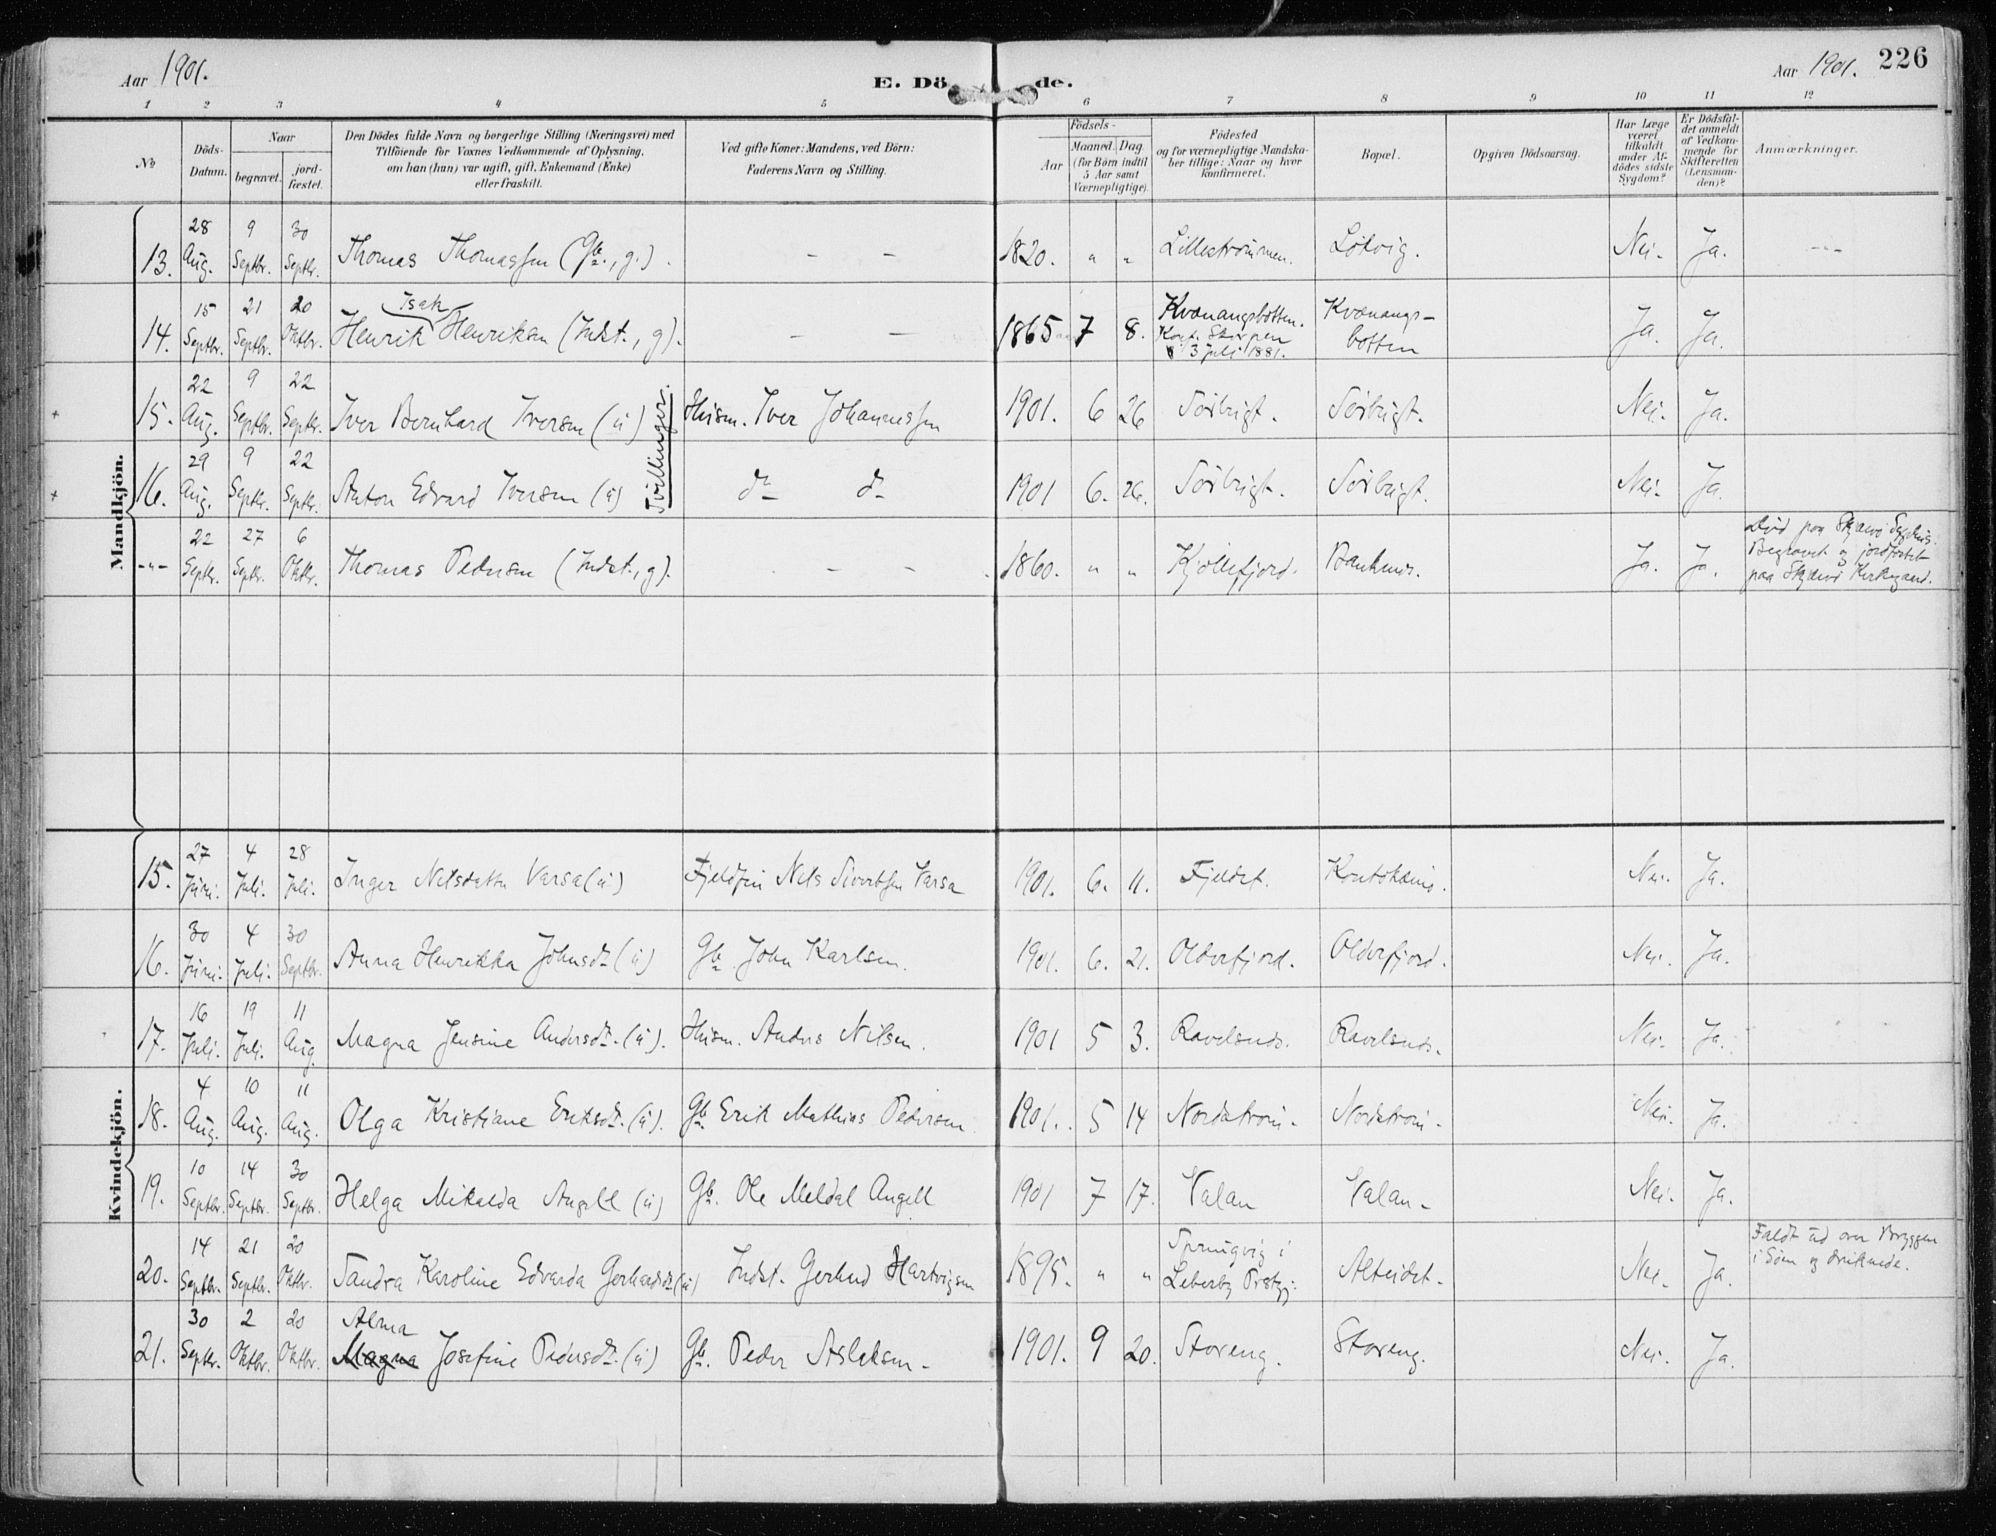 Aar 1901. E. Dö de. Aar 1901. 226
1 2 3 4 5 6 7 8 9 10 11 12
No
Döds-Datum.
Naar
begravet.
jord-fæstet.
Den Dödes fulde Navn og borgerlige Stilling (Næringsvei) med
Tilföiende for Voxnes Vedkommende af Oplysning,
om han (hun) var ugift, gift, Enkemand (Enke)
eller fraskilt.
Ved gifte Koner: Mandens, ved Börn:
Faderens Navn og Stilling.
Födsels-
Aar
Maaned. Dag.
(for Börn indtil
5 Aar samt
Værnepligtige)
Födested
og for værnepligtige Mandska-
ber tillige: Naar og hvor
konfirmeret.
Bopæl.
Opgiven Dödsaarsag.
Har Læge
været
tilkaldt
under Af-
dödes sidste
Sygdom?
Er Dödsfal-
det anmeldt
af Vedkom-
mende for
Skifteretten
(Lensman-
den)?
Anmærkninger.
Mandkjön.
13. 28 Aug. 9 Septbr. 30 Septbr. Thomas Thomassen (Gb., g.). - - 1820. " " Lillestrømmen. Løkvig. Nei. Ja. ---
14. 15 Septbr. 21 Septbr. 20 Oktbr. Henrik Isak Henriksen (Indst., g). - - 1865 7 8. Kvænangsbotten. Konf. Skorpen 3 juli 1881. Kvænangs-botten Ja. Ja.
+ 15. 22 Aug. 9 Septbr. 22 Septbr. Iver Bernhard Iversen (ú) Husm. Iver Johannessen 1901. 6 26 Sørbugt. Sørbugt. Nei. Ja.
Tvillinger.
+ 16. 29 Aug. 9 Septbr. 22 Septbr. Anton Edvard Iversen (ú) do do 1901 6. 26. Sørbugt. Sørbugt. Nei. Ja.
-"- 22 Septbr. 27 Septbr. 6 Oktbr. Thomas Pedersen (Indst., g). - - 1860. " " Kjøllefjord. Ja. Ja. Død paa Skjærvø Sygehus.
Begravet og jordfæstet
paa Skjærvø Kirkegaard.
Kvindekjön.
15. 27 Júni. 4 Juli. 28 Juli. Inger Nilsdatter Varsa (ú) Fjeldfin Nils Sivertsen Varsa 1901. 6. 11. Fjeldet. Koutokæino. Nei. Ja.
16. 30 Júni. 4 Juli. 30 Septbr. Anna Henrikka Johnsdr (ú) Gb. John Karlsen. 1901. 6. 21. Olderfjord. Olderfjord. Nei. Ja.
17. 16 Juli. 19 Juli. 11 Aug. Magna Jensine Andersdr. (ú). Husm. Anders Nilsen. 1901 5 3. Ravelsnes. Ravelsnes. Nei. Ja.
18. 4 Aug. 10 Aug. 11 Aug. Olga Kristiane Eriksdr. (ú). Gb. Erik Mathias Pedersen 1901. 5 14 Nordstrøm. Nordstrøm. Nei. Ja.
19. 10 Septbr. 14 Septbr. 30 Septbr. Helga Mikalda Angell (ú) Gb. Ole Meldal Angell 1901 7 17. Valan Valan. Nei. Ja.
20. 14 Septbr. 21 Septbr. 20 Oktbr. Sandra Karoline Edvarda Gerhardsdr. (ú) Indst. Gerhard Hartvigsen 1895. " " Alteidet. Nei. Ja. Faldt ud over Bryggen
i Søen og druknede.
21. 30 Septbr. 2 Oktbr. 20 Oktbr. Alma Magna Josefine Pedersdr. (ú) Gb. Peder Aslaksen. 1901. 9 20. Storeng. Storeng. Nei. Ja.